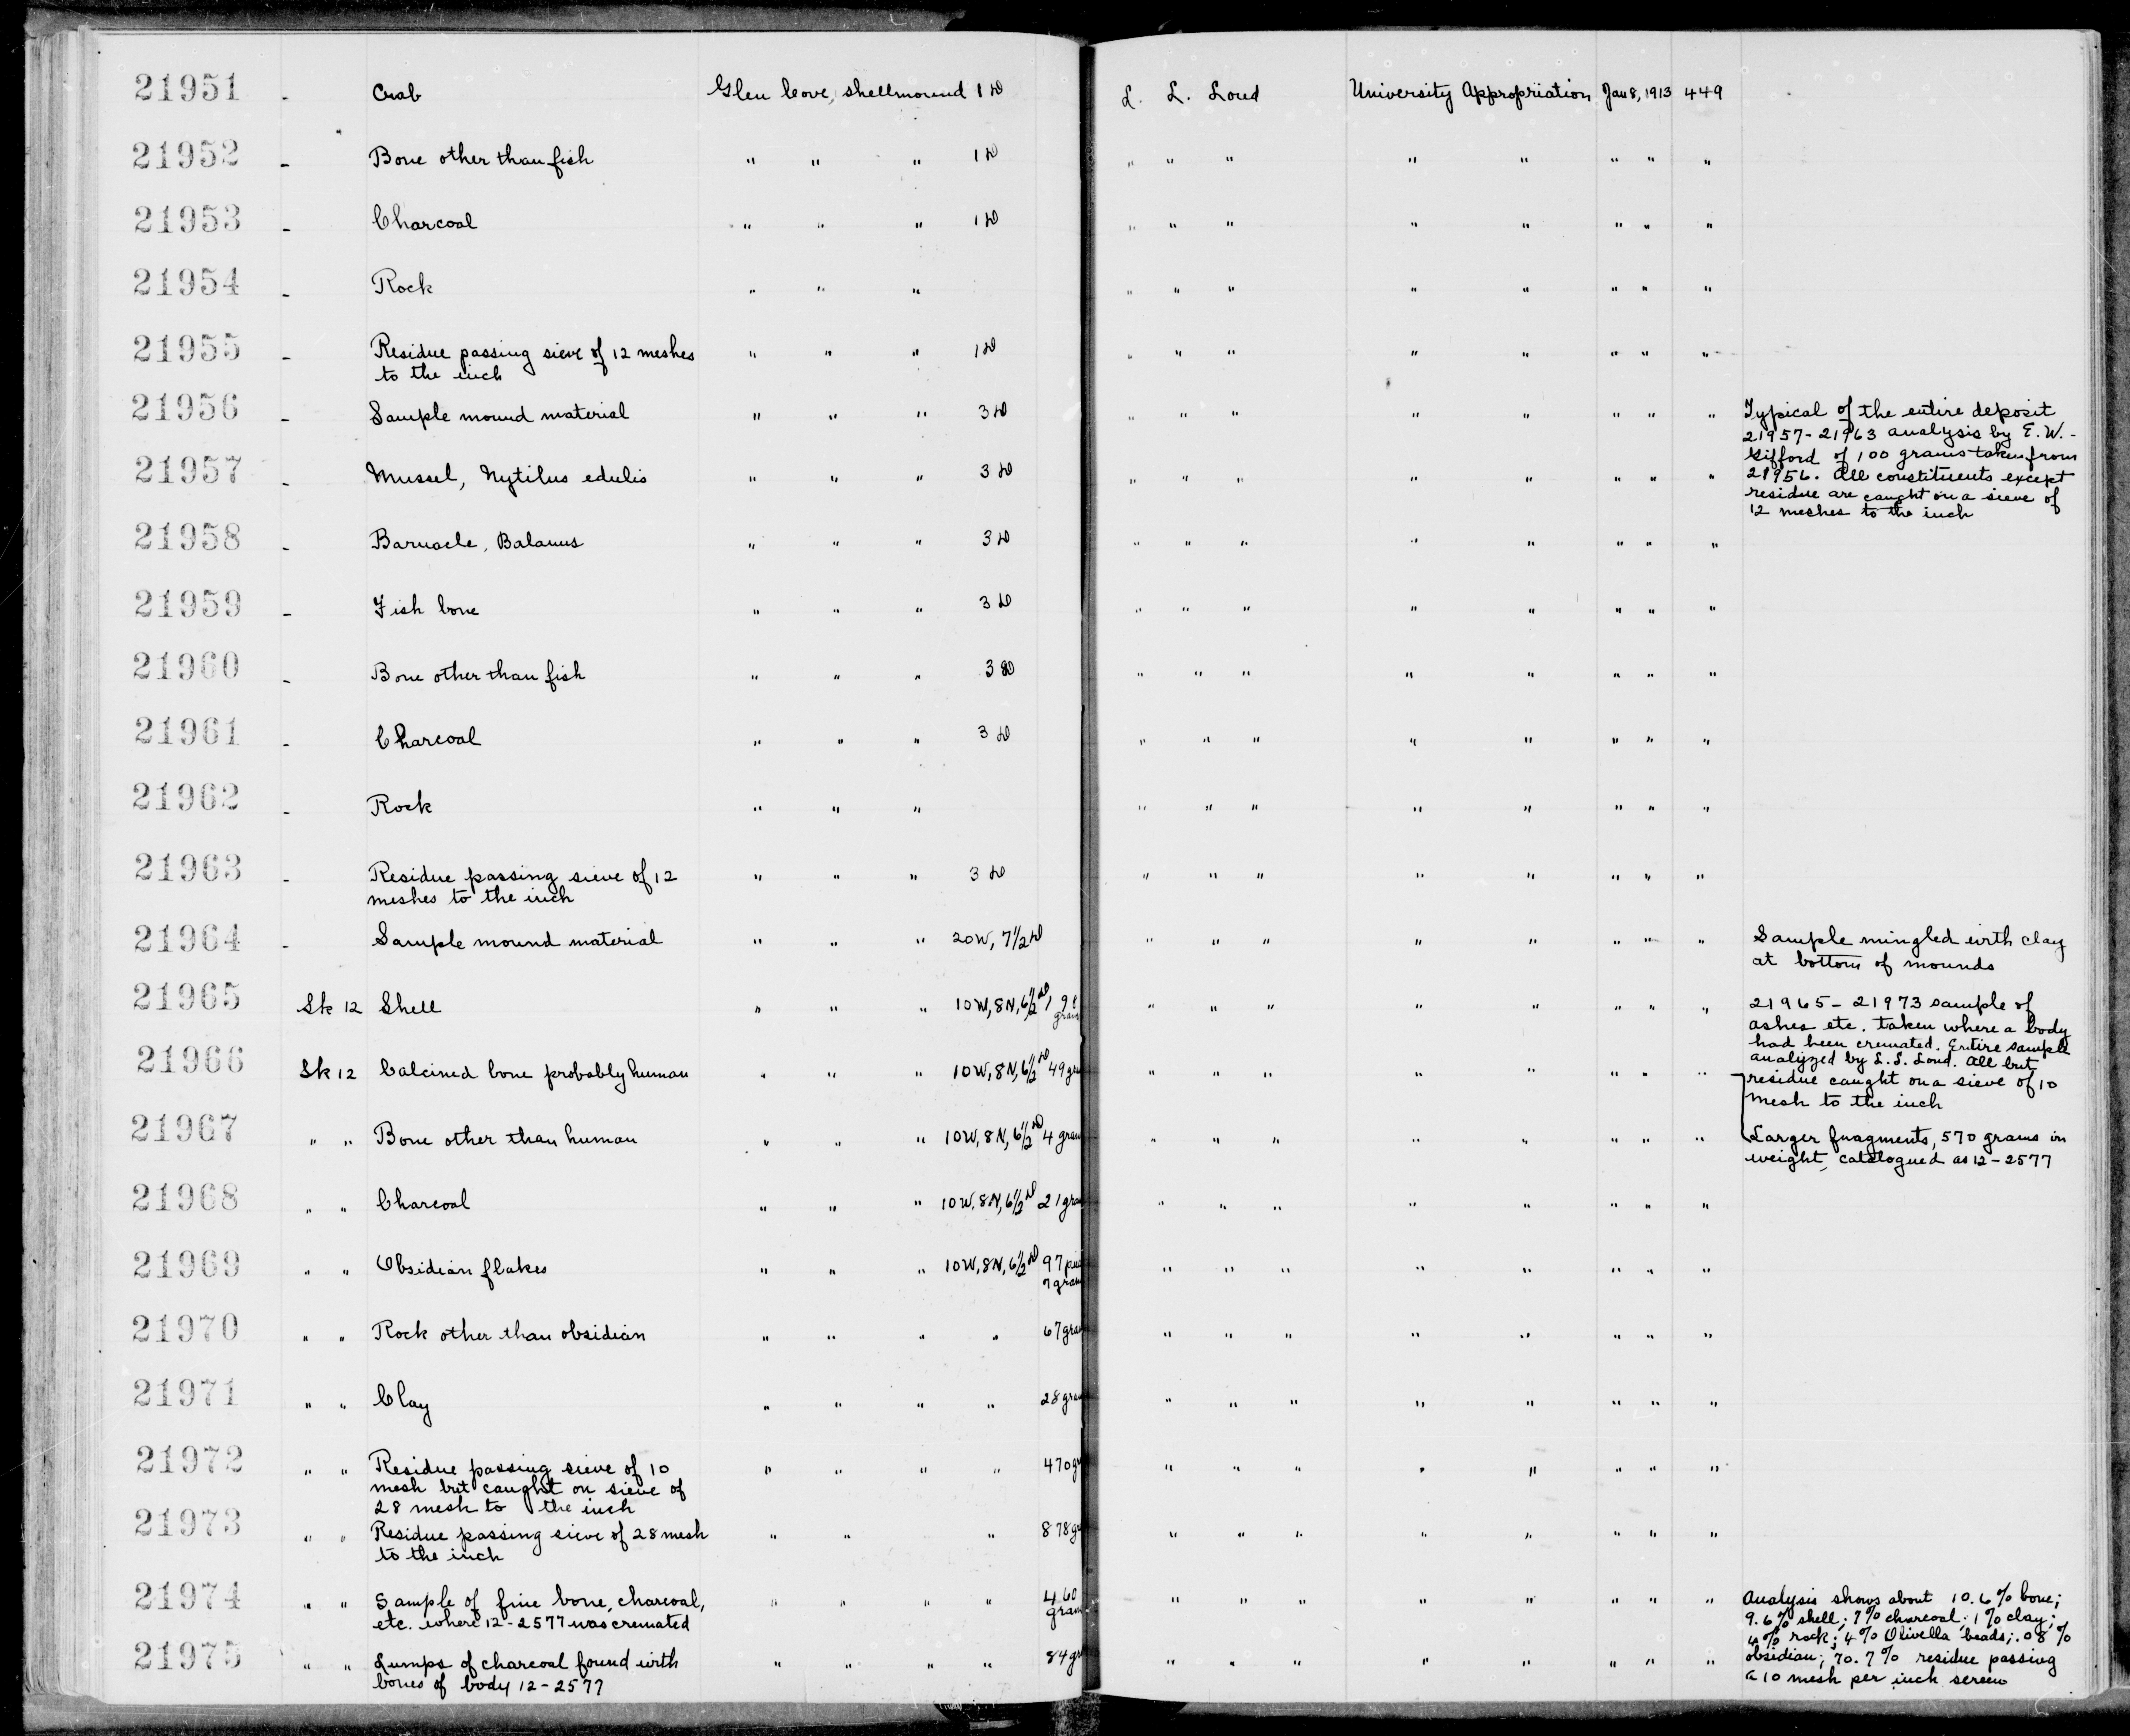 21951 - Crab Glen Cove, shellmound 1 D L. L. Loud University Appropriation Jan 8, 1913 449
21952 - Bone other than fish " " " 1 D " " " " " " " "
21953 - Charcoal " " " 1 D " " " " " " " "
21954 - Rock " " " " " " " " " " "
21955 - Residue passing sieve of 12 meshes " " " 1 D " " " " " " " "
to the inch
21956 - Sample mound material " " " 3 D " " " " " " " " Typical of the entire deposit
21957-21963 analysis by E. W. -
Gifford of 100 grams taken from
21957 - Mussel, Mytilus edulis " " " 3 D " " " " " " " " 21956. All constituents except
residue are caught on a sieve of
12 meshes to the inch
21958 - Barnacle, Balanus " " " 3 D " " " " " " " "
21959 - Fish bone " " " 3 D " " " " " " " "
21960 - Bone other than fish " " " 3 D " " " " " " " "
21961 - Charcoal " " " 3 D " " " " " " " "
21962 - Rock " " " " " " " " " " "
21963 - Residue passing sieve of 12 " " " 3 D " " " " " " " "
meshes to the inch
21964 - Sample mound material " " " 20W, 7 1/2 D " " " " " " " " Sample mingled with clay
at bottom of mounds
21965 Sk 12 Shell " " " 10W, 8N, 6 1/2 D " " " " " " " " 21965-21973 sample of
ashes etc. taken where a body
had been cremated. Entire sample
analyzed by L. L. Loud. All but
21966 Sk 12 Calcined bone probably human " " " 10W, 8N, 6 1/2 D 49 gra " " " " " " " " residue caught on a sieve of 10
mesh to the inch
21967 " " Bone other than human " " " 10W, 8N, 6 1/2 D 4 gram " " " " " " " " Larger fragments, 570 grams in
weight, catalogued as 12-2577
21968 " " Charcoal " " " 10W, 8N, 6 1/2 D 21 gram " " " " " " " "
21969 " " Obsidian flakes " " " 10W, 8N, 6 1/2 D 97 " " " " " " " "
7 gram
21970 " " Rock other than obsidian " " " " 67 gram " " " " " " " "
21971 " " Clay " " " " 28 gram " " " " " " " "
21972 " " Residue passing sieve of 10 " " " " 470 gr " " " " " " " "
mesh but caught on sieve of
28 mesh to the inch
21973 " " Residue passing sieve of 28 mesh " " " 878 gr " " " " " " " "
to the inch
21974 " " Sample of fine bone, charcoal, " " " " 460 " " " " " " " " Analysis shows about 10.6% bone;
etc. where 12-2577 was cremated gram 9.6% shell; 7% charcoal; 1% clay;
4% rock; 4% Olivella beads; .08%
21975 " " Lumps of charcoal found with " " " " 84 gr " " " " " " " " obsidian; 70.7% residue passing
bones of body 12-2577 a 10 mesh per inch screen